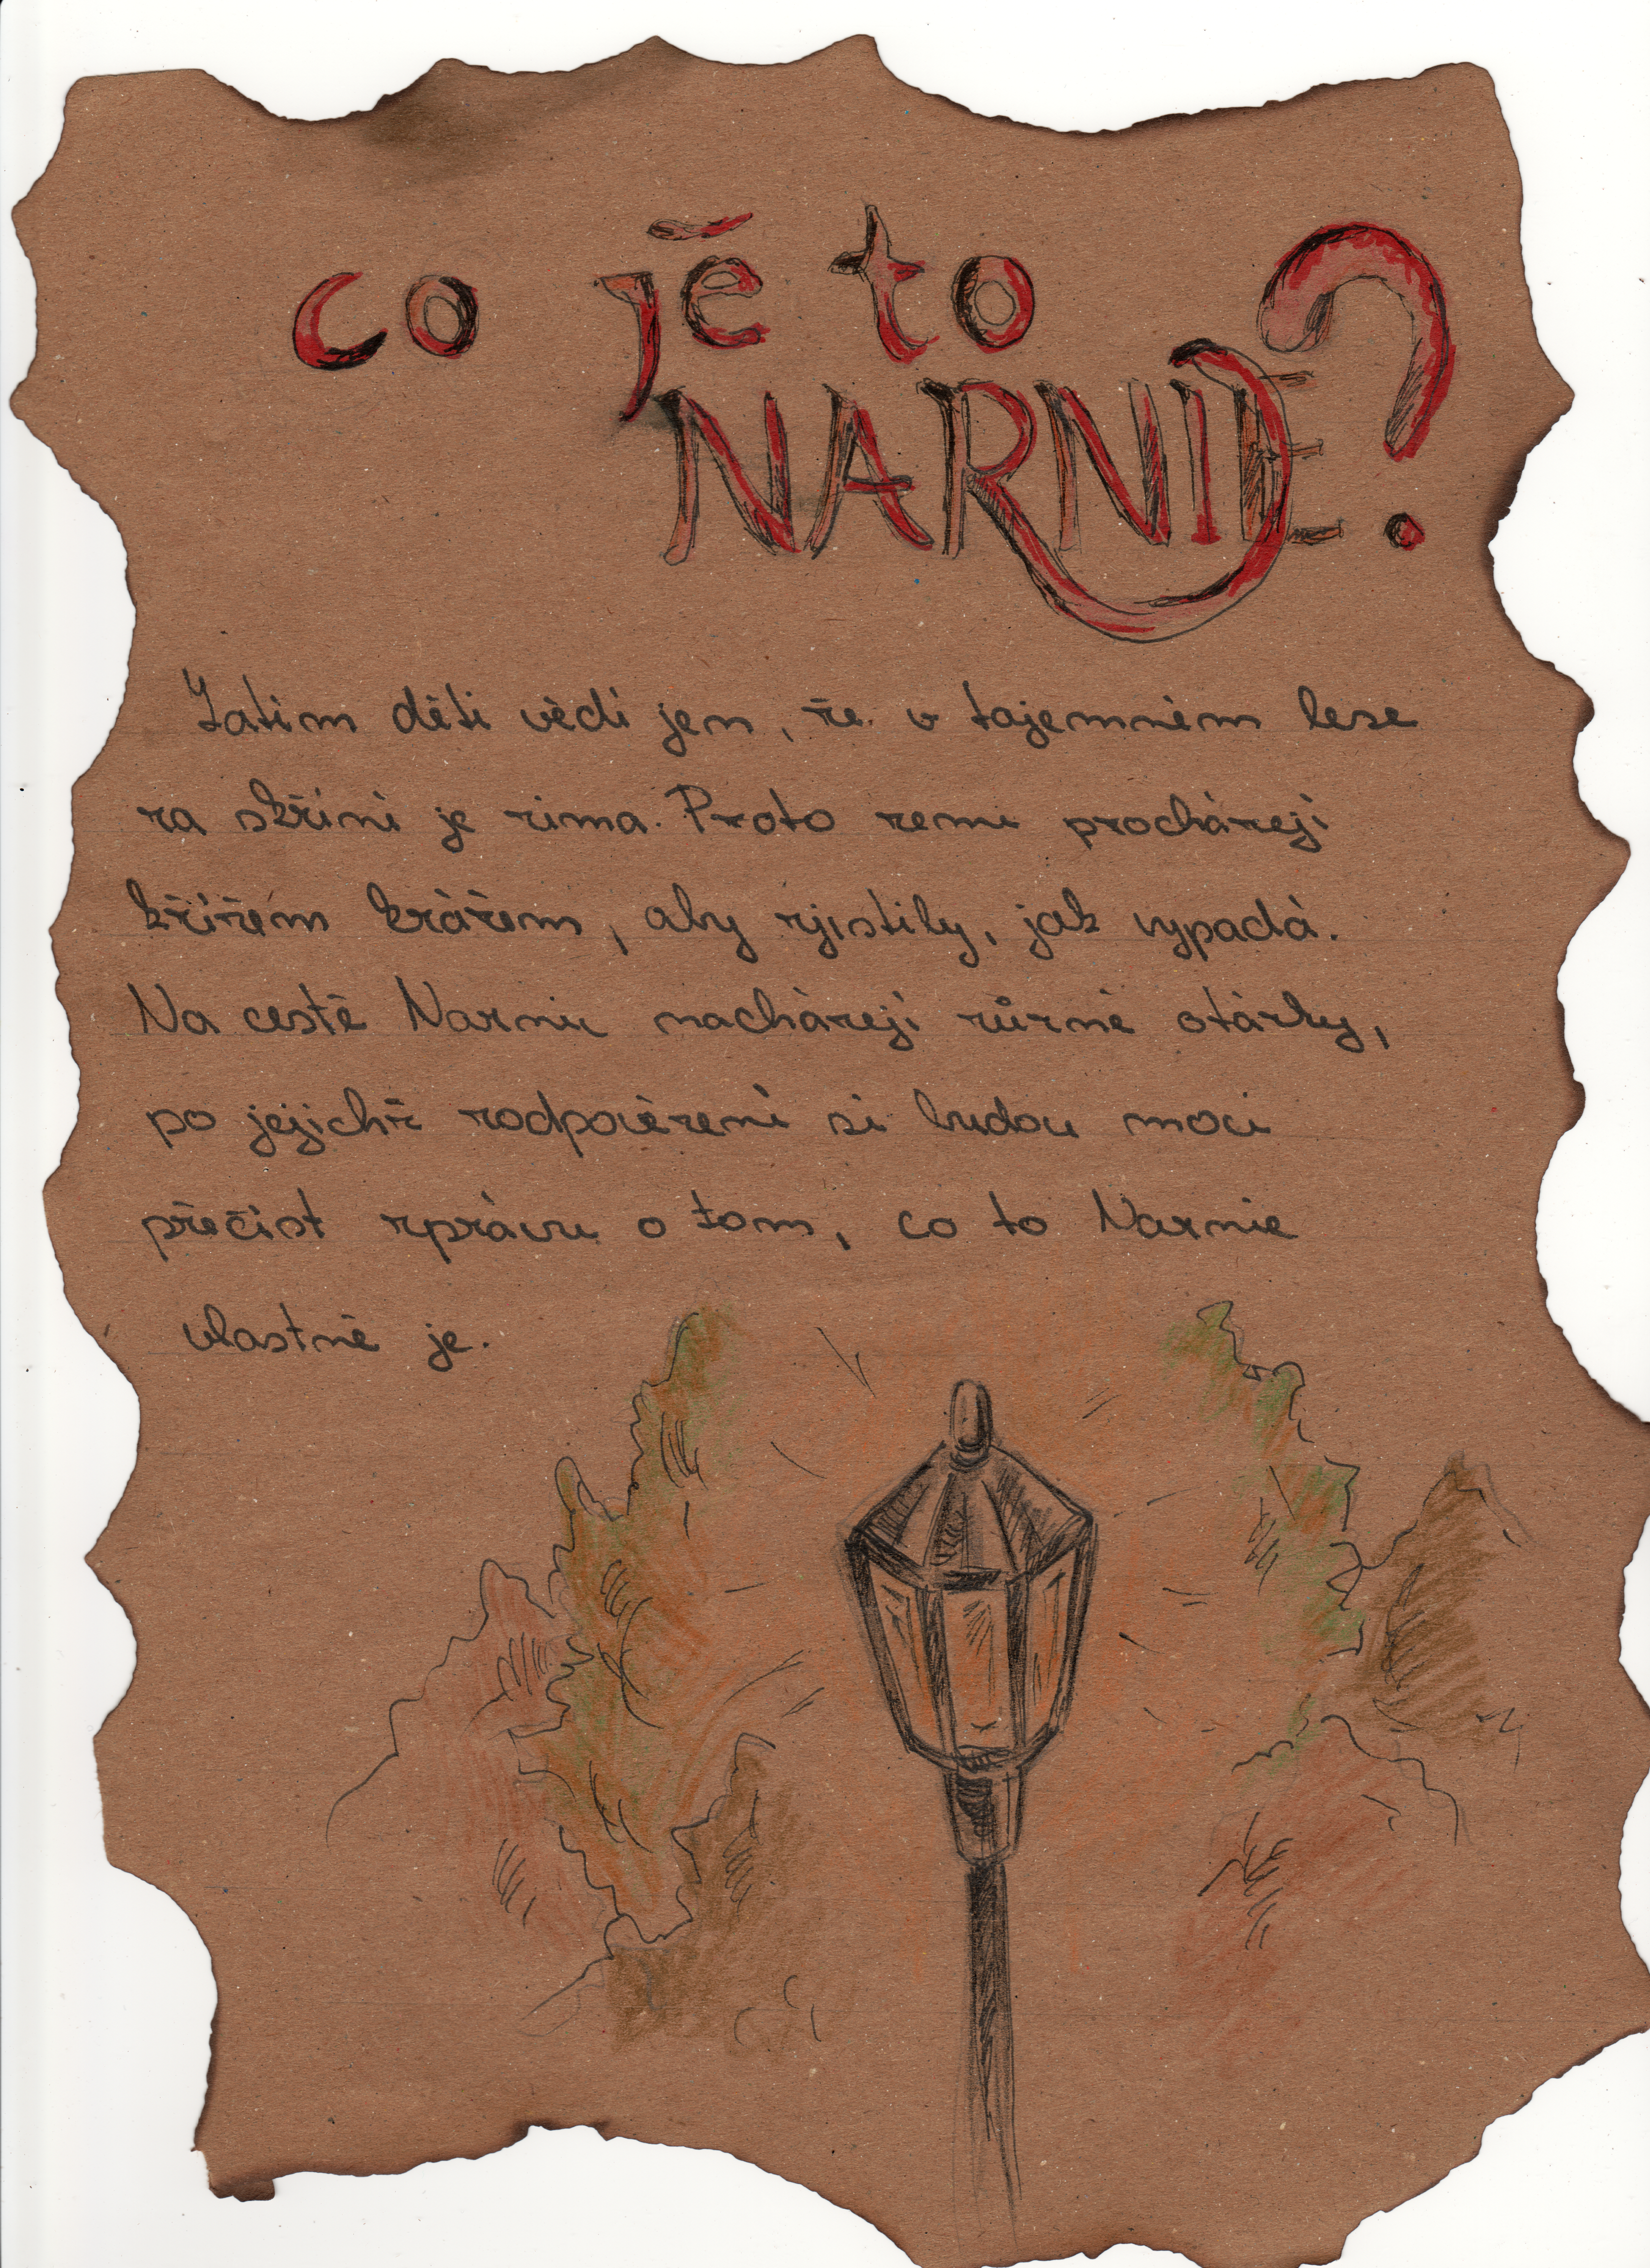 co je to
NARNIE?
Zatím děti vědí jen, že v tajemném lese
za skříní je zima. Proto zemi procházejí
křížem krážem, aby zjistily, jak vypadá.
Na cestě Narnií nacházejí různé otázky,
po jejichž zodpovězení si budou moci
přečíst zprávu o tom, co to Narnie
vlastně je.